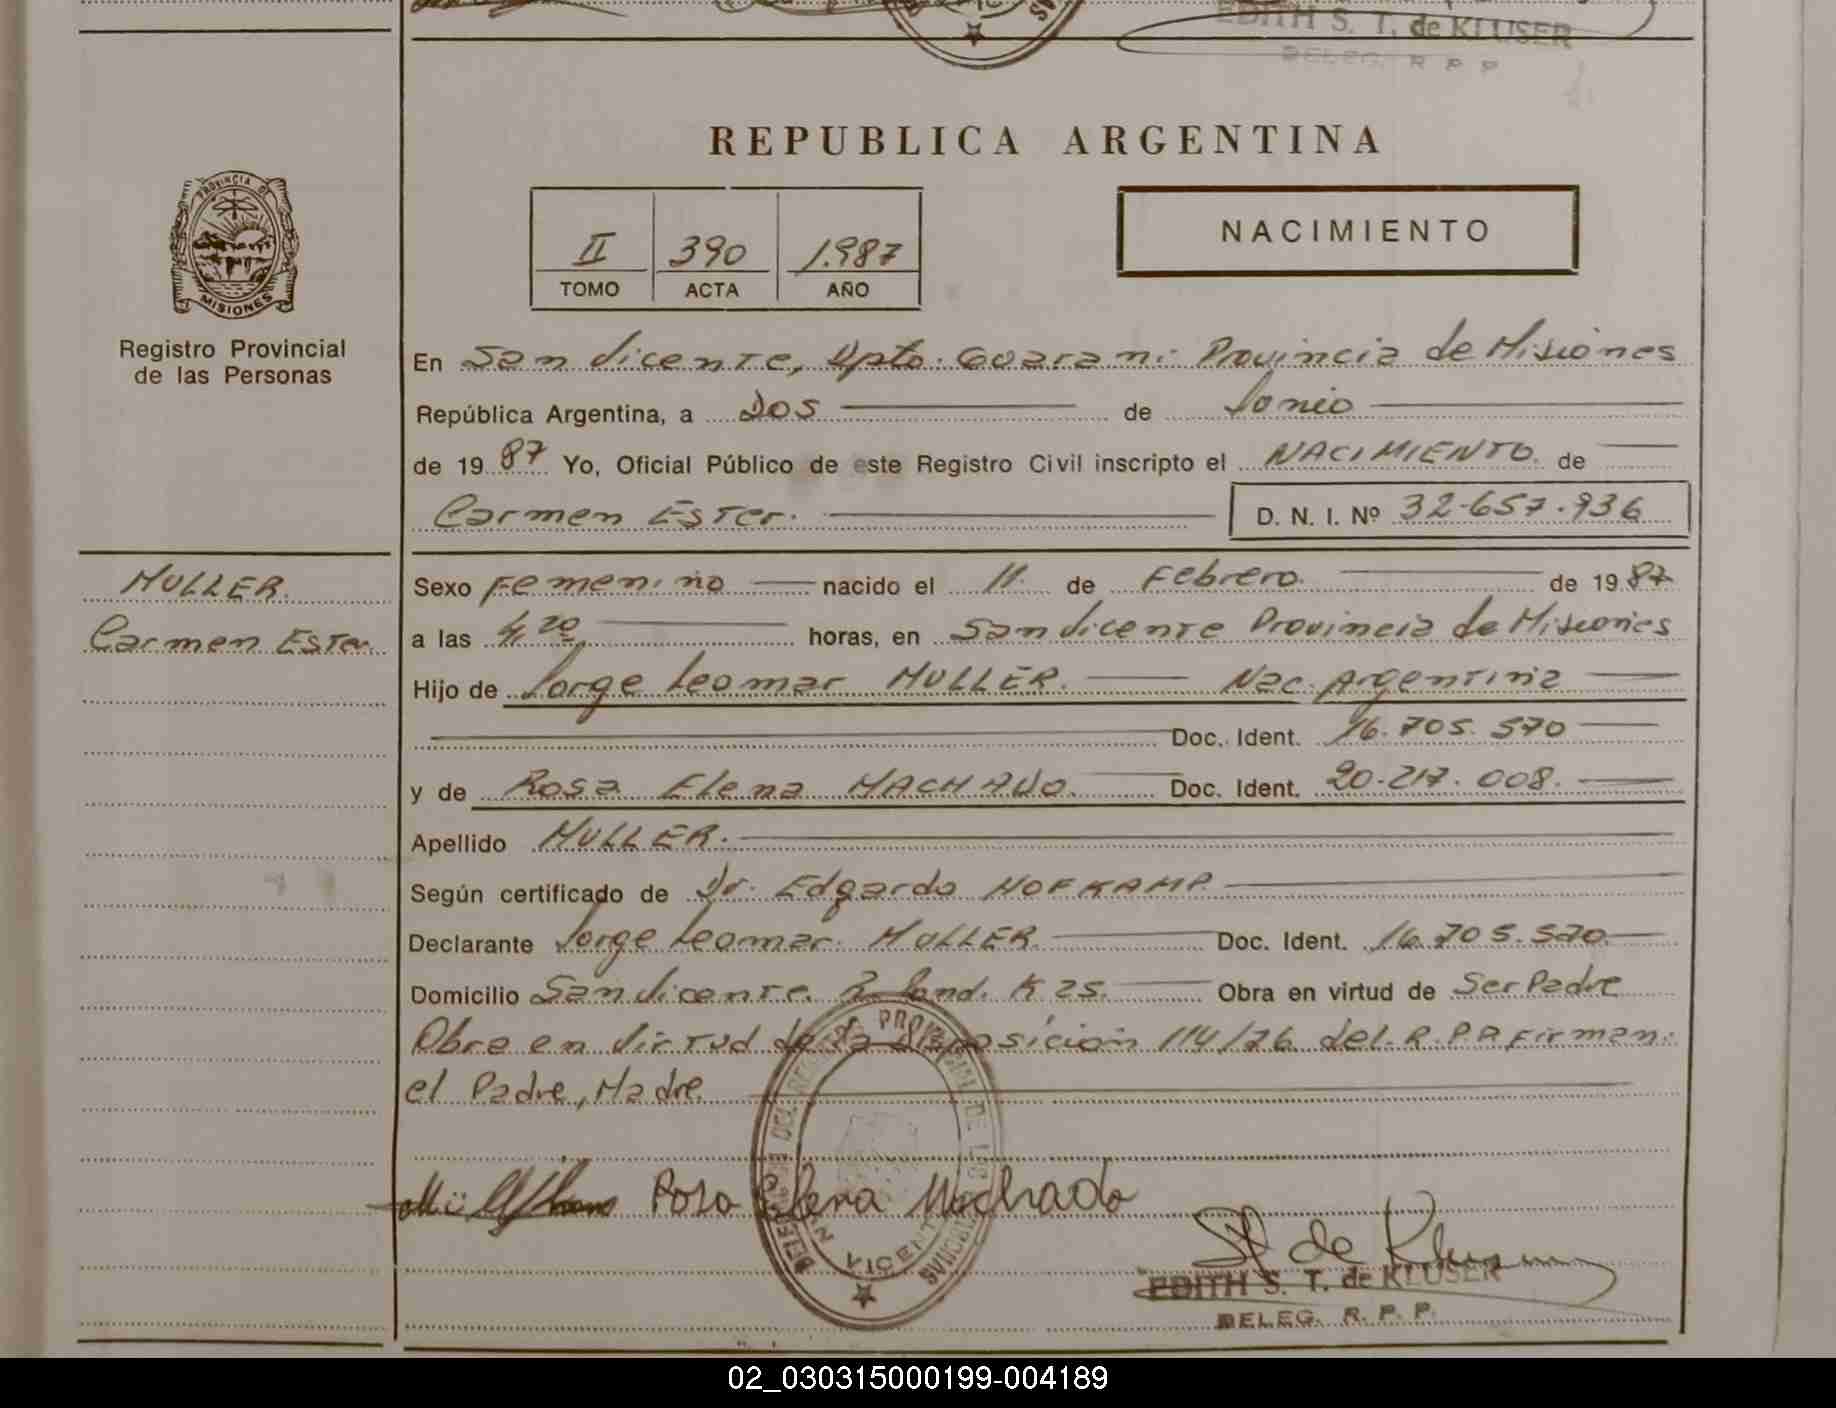 EDITH S. T. de KLUSER
DELEG. R P P
REPUBLICA ARGENTINA
PROVINCIA DE
MISIONES
Registro Provincial
de las Personas
II 390 1.987
TOMO ACTA AÑO
NACIMIENTO
En San Vicente, Dpto. Guarani Provincia de Misiones
República Argentina, a Dos de Junio
de 19 87 Yo, Oficial Público de este Registro Civil inscripto el NACIMIENTO de
Carmen Ester. D. N. I. Nº 32-657.936
MULLER.
Carmen Ester.
Sexo Femenino nacido el 11 de Febrero. de 19 87
a las 4,20 horas, en San Vicente Provincia de Misiones
Hijo de Jorge Leomar MULLER. Nac. Argentina
Doc. Ident. 16.705.570
y de Rosa Elena MACHADO. Doc. Ident. 20.217.008.
Apellido MULLER.
Según certificado de Dr. Edgardo HOFKAMP.
Declarante Jorge Leomar. MULLER. Doc. Ident. 16.705.570
Domicilio San Vicente. K 25. Obra en virtud de Ser Padre
Obre en Virtud de la Disposición 114/76 del R.P.P. Firman:
el Padre, Madre.
Rosa Elena Machado
DELEGACION DEL REGISTRO PROVINCIAL DE LAS PERSONAS
SAN VICENTE
de Kluser
EDITH S. T. de KLUSER
DELEG. R. P. P.
02_030315000199-004189